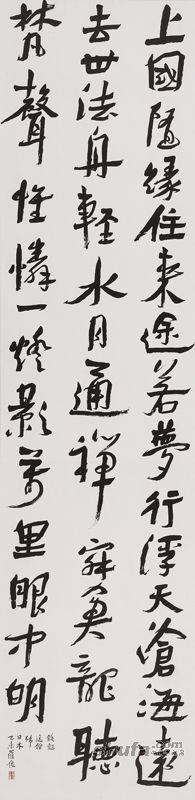 上國隨緣住來途若夢行浮天滄海遠
去世法舟輕水月通禪寂魚龍聽
梵聲惟憐一燈影萬里眼中明
錢起
送僧
歸
日本
乙未